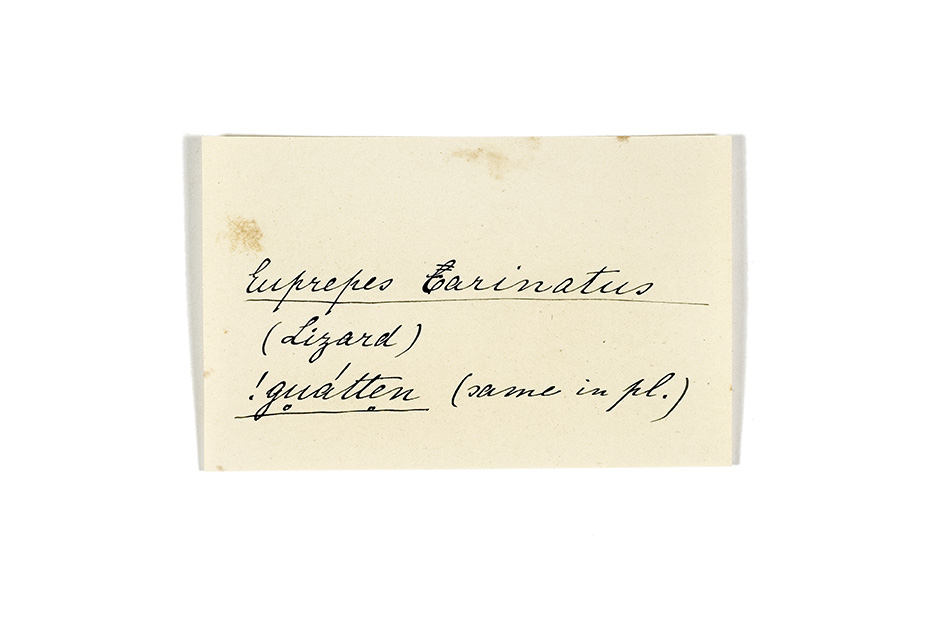 Euprepes Carinatus
(Lizard)
!gu̥átte̥n (same in pl.)